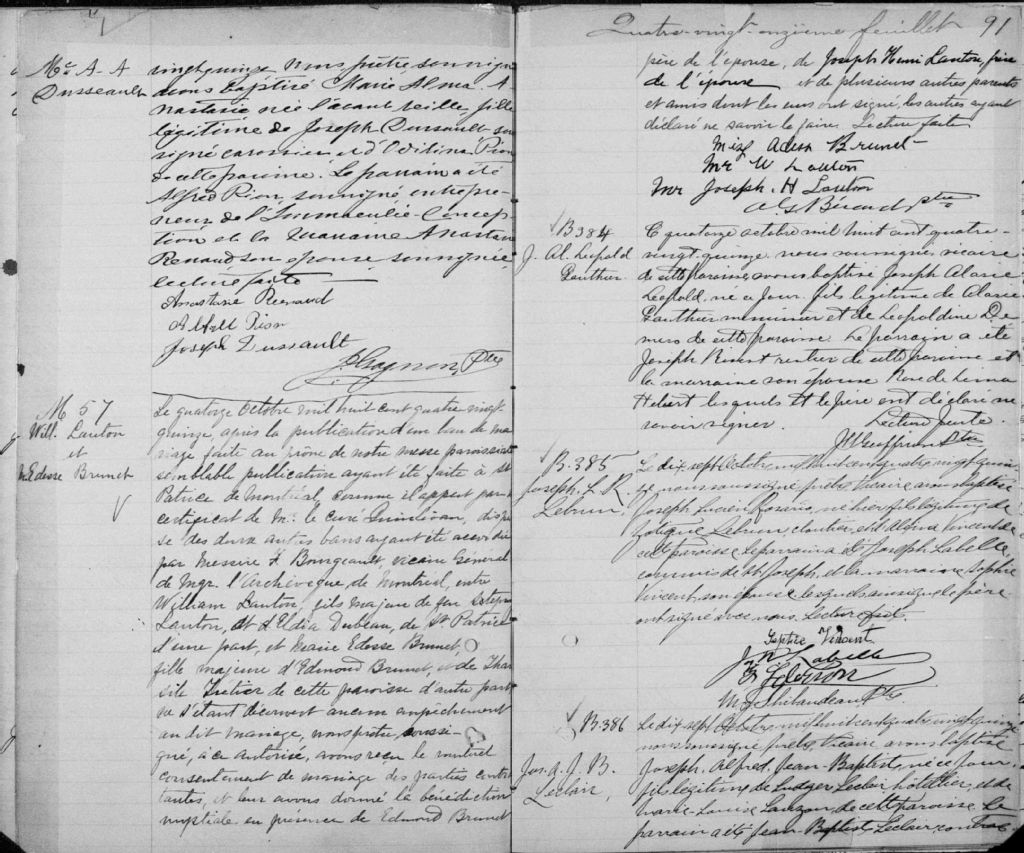 Mie A. A
Dusseault
vingt quinze Nous prêtre, soussigné
avons baptisé Marie Alma A-
nastasie née l'avant veille, fille
légitime de Joseph Dussault sous
signé carossier, et d'Odilina Pion
de cette paroisse. Le parrain a été
Alfred Pion, soussigné, entrepre-
neur de l'Immaculée-Concep-
tion et la marraine Anastasie
Renaud son épouse, soussignée,
lecture faite
Anastasie Renaud
Alfred Pion
Joseph Dussault
Gagnon, Ptre
M 57
Will. Lauton
et
M. Edesse Brunet
Le quatorze Octobre mil huit cent quatre vingt
quinze, après la publication d'un ban de ma-
riage faite au prône de notre messe paroissiale
semblable publication ayant été faite à St
Patrice de Montréal comme il appert par
certificat de Mr. le curé Quinlivan, dispen
se des deux autres bans ayant été accordée
par Messire F. Bourgeault, vicaire Général
de Mgr. l'Archevêque, de Montréal, entre
William Lauton, fils majeur de feu
Lauton, et d'Eldia Dubeau, de St Patrice
d'une part, et Marie Edesse Brunet,
fille majeure d'Edmond Brunet, et de Thar
sile de cette paroisse d'autre part
ne s'étant découvert aucun empêchement
au dit mariage, nous prêtre soussi-
gné, à ce autorisé, avons reçu le mutuel
consentement de mariage des parties contrac
tantes, et leur avons donné la bénédiction
nuptiale en présence de Edmond Brunet
Quatre-vingt-onzième feuillet 91
père de l'épouse, de Joseph Henri Lauton, frère
de l'épouse et de plusieurs autres parents
et amis dont les uns ont signé, les autres ayant
déclaré ne savoir le faire. Lecture faite
Miss Brunet
Mr W Lauton
Mr Joseph. H Lauton
Bérard, Ptre
B 384
J. Al. Leopold
Gauthier
Le quatorze octobre mil huit cent quatre-
vingt-quinze, nous soussigné, vicaire
de cette paroisse, avons baptisé Joseph Alarie
Leopold, né ce jour, fils légitime de Alarie
Gauthier menuisier et de Leopoldine De
mers de cette paroisse. Le parrain a été
Joseph rentier de cette paroisse et
la marraine son épouse Rose de Lima
Hébert lesquels et le père ont déclaré ne
savoir signer. Lecture faite.
Geoffrion Ptre
B. 385
Joseph. L. R.
Lebrun.
Le dix sept Octobre mil huit cent quatre vingt quin-
ze, nous soussigné, prêtre vicaire avons baptisé
Joseph Lucien Rosario, né hier fils légitime de
Zotique Lebrun, cloutier, et d'Albina Vincent de
cette paroisse Le parrain a été Joseph Labelle,
commis de St Joseph, et la marraine Sophie
Vincent, son épouse lesquels ainsi que le père
ont signé avec nous. Lecture faite.
Sophie Vincent
Labelle
M. J. Thibaudeau Ptre
B. 386
Jos. A. J. B.
Leclair,
Le dix sept Octobre mil huit cent quatre vingt quinze
nous soussigné prêtre vicaire avons baptisé
Joseph, Alfred, Jean-Baptiste, né ce jour,
fils légitime de Ludger Leclair, hôtelier, et de
Marie-Louise Lauzon de cette paroisse. Le
parrain a été Jean-Baptiste Leclair,